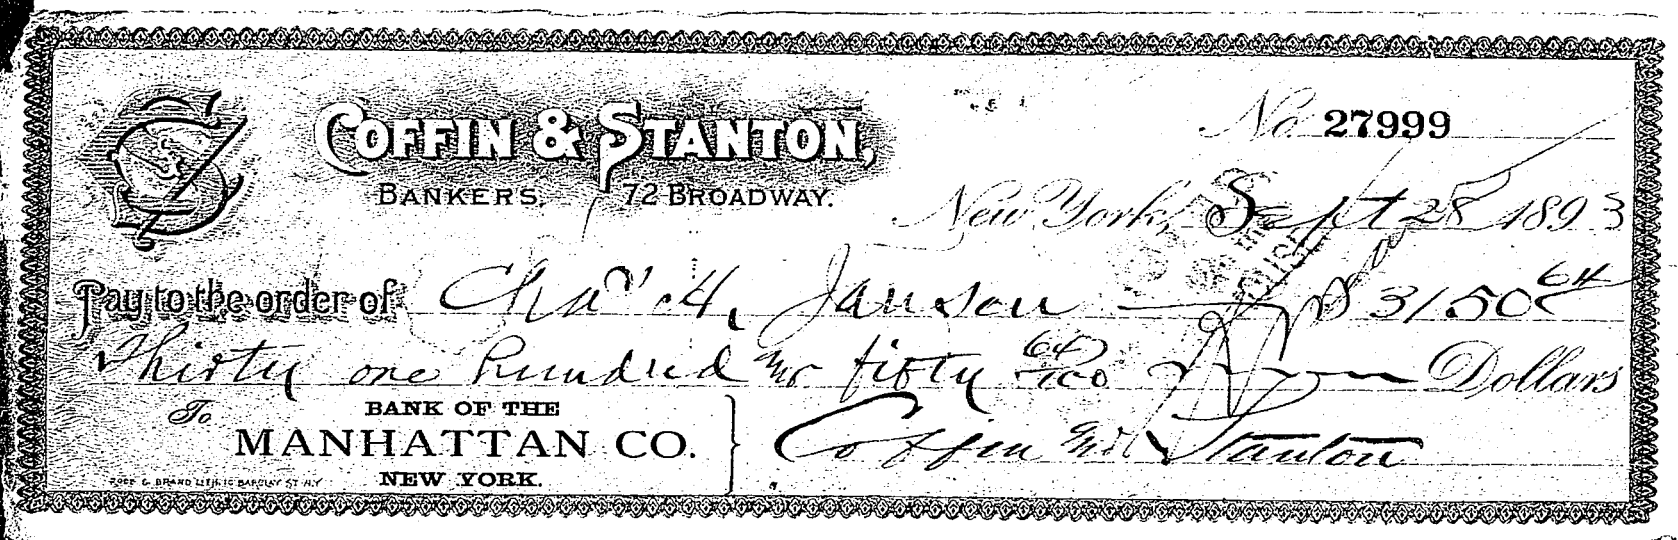 COFFIN & STANTON,
No. 27999
BANKERS, 72 BROADWAY.
New York, Sept 28 1893
Pay to the order of Chas H. Janson $3150 64
Thirty one hundred and fifty 64/100 Dollars
To
BANK OF THE
MANHATTAN CO.
NEW YORK.
Coffin and Stanton